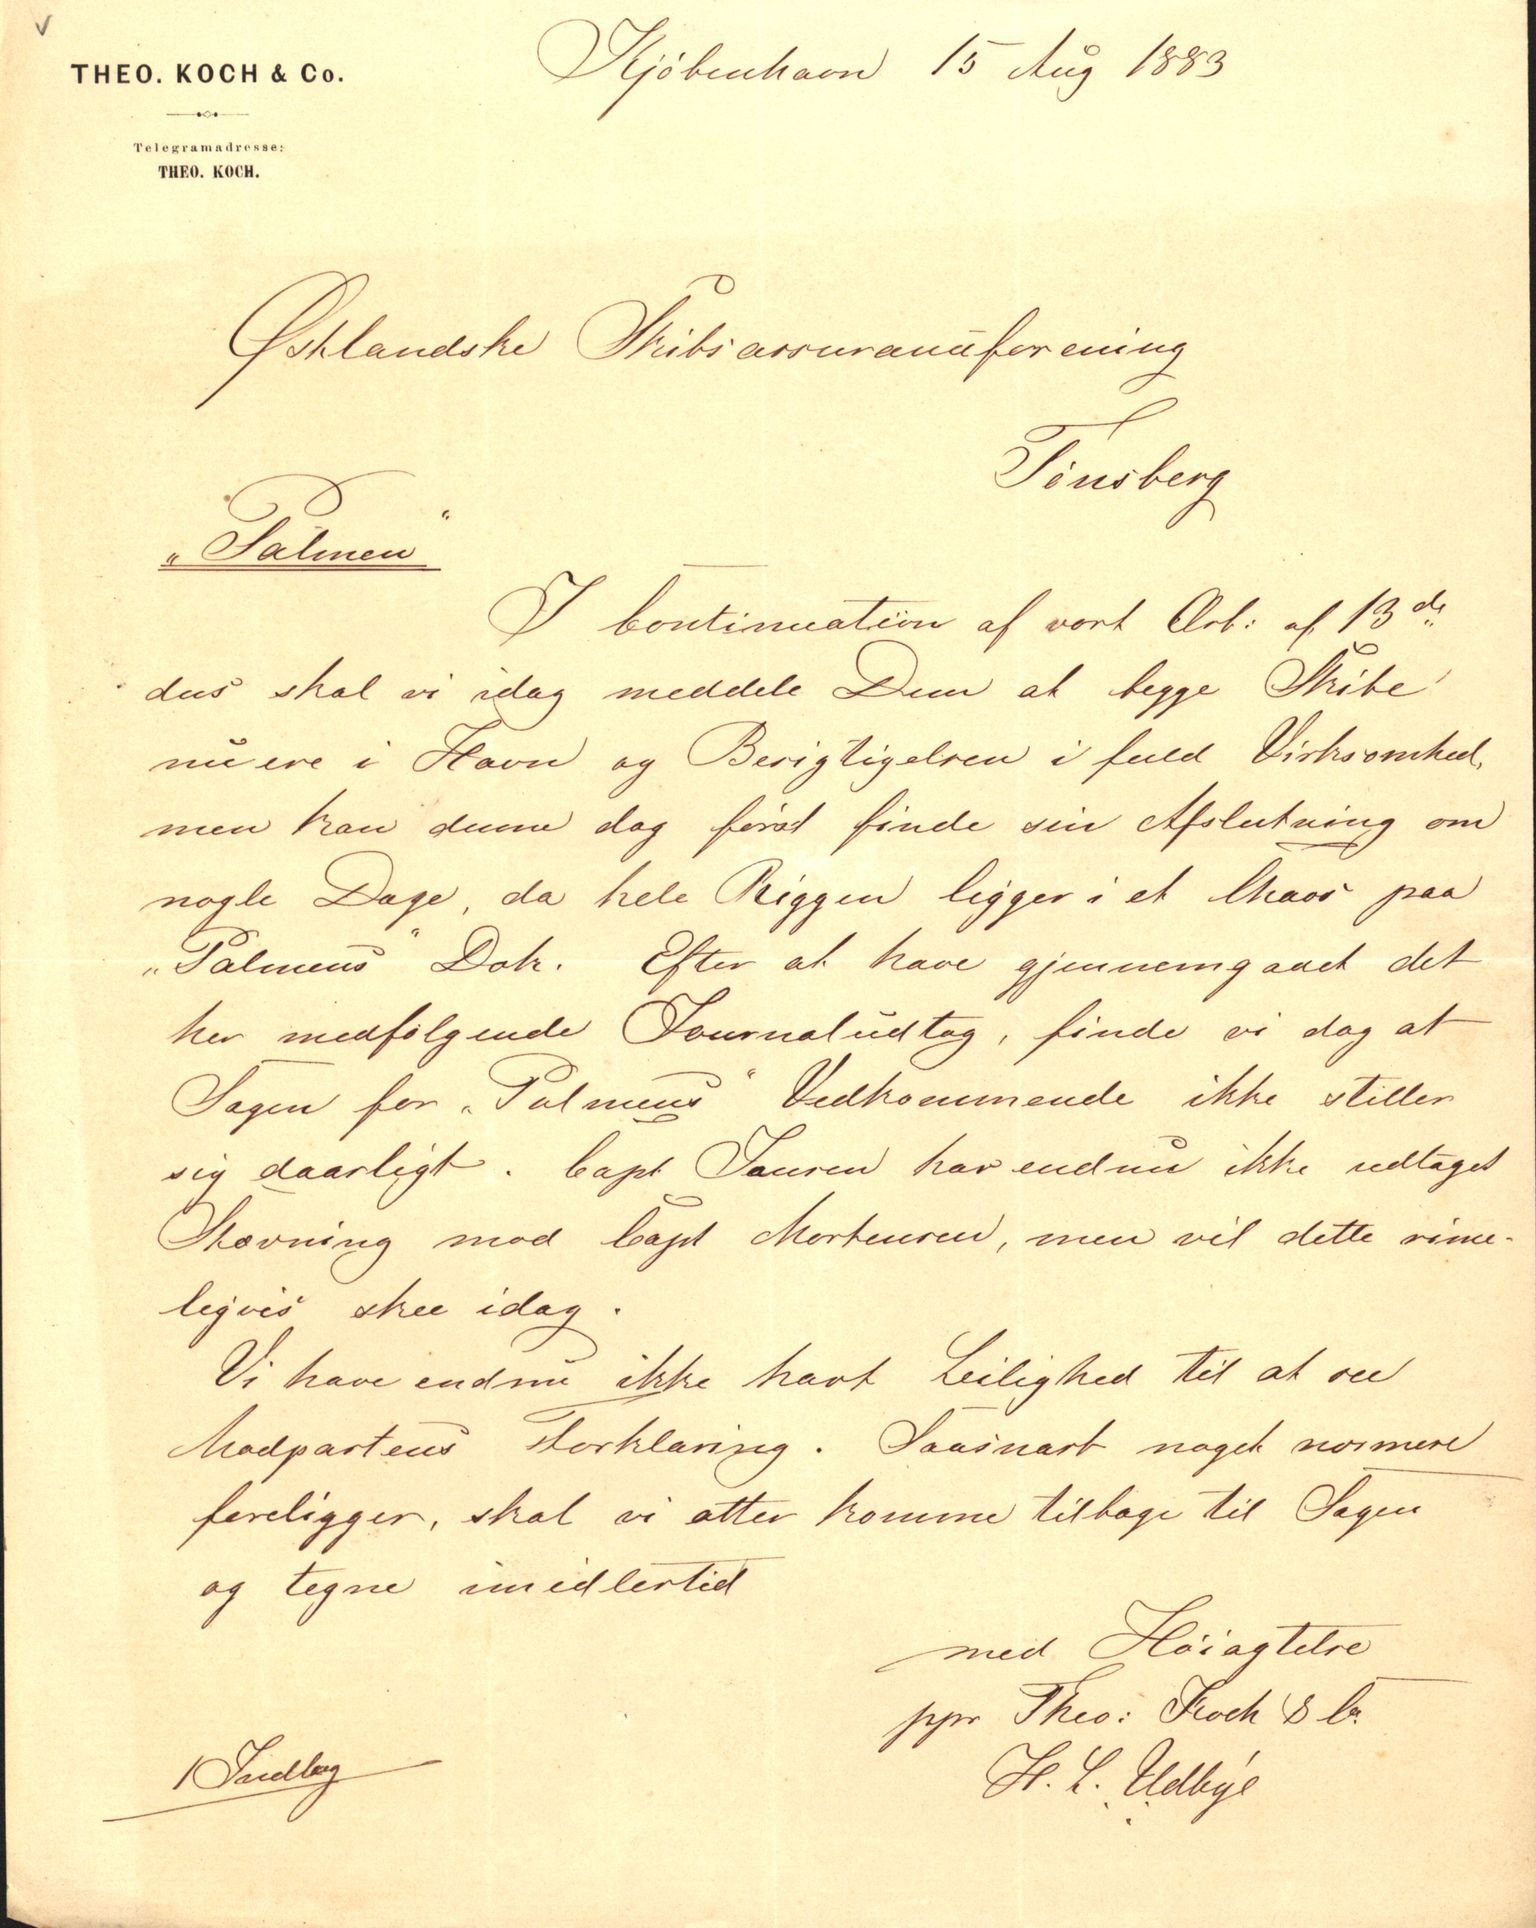 THEO. KOCH & Co.
Kjöbenhavn 15 Aug 1883
Telegramadresse:
THEO. KOCH.
Østlandske Skibsassuranceforening
Tönsberg
„Palmen“
I Continuation af vort Arb: af 13 ds
dns skal vi idag meddele Dem at begge Skibe
nu ere i Havn og Besigtigelsen i fuld Virksomhed,
men kan denne dog först finde sin Afslutning om
nogle Dage, da hele Riggen ligger i et Chaos paa
„Palmens“ Dæk. Efter at have gjennemgaaet det
her medfölgende Journaludtog, finde vi dog at
Sagen for „Palmens“ Vedkommende ikke stiller
sig daarligt. Capt Jensen har endnu ikke udtaget
Stævning mod Capt Mortensen, men vil dette rime-
ligvis skee idag.
Vi have endnu ikke havt Leilighed til at see
Modpartens Forklaring. Saasnart noget nærmere
foreligger, skal vi atter komme tilbage til Sagen
og tegne imidlertid
med Höiagtelse
ppr Theo: Koch & Co.
H. L. Udbye
1 Indlæg